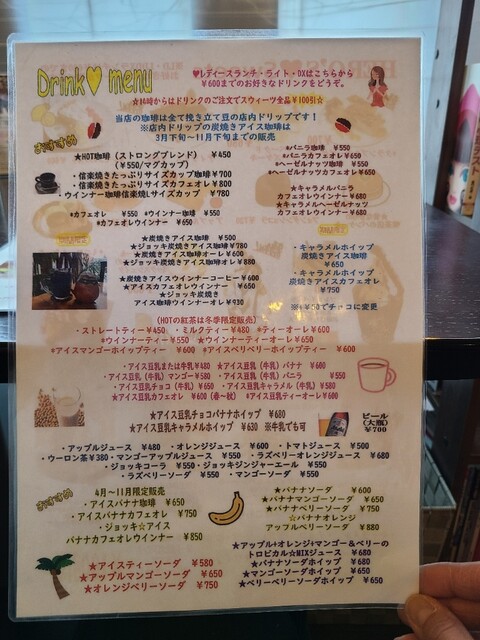 Drink♥menu
♥レディースランチ・ライト・DXはこちらから
¥600までのお好きなドリンクをどうぞ。
★14時からはドリンクのご注文でスウィーツ全品¥100引☆
当店の珈琲は全て挽き立て豆の店内ドリップです！
※店内ドリップの炭焼きアイス珈琲は
3月下旬～11月下旬までの販売
おすすめ
★HOT珈琲（ストロングブレンド） ¥450
（¥550/マグカップ）
・信楽焼きたっぷりサイズカップ珈琲¥700
・信楽焼きたっぷりサイズカフェオレ¥800
・ウインナー珈琲信楽焼Lサイズカップ ¥780
*バニラ珈琲 ¥550
*バニラカフェオレ¥650
*ヘーゼルナッツ珈琲 ¥550
*ヘーゼルナッツカフェオレ¥650
★キャラメルバニラ
カフェオレウインナー¥680
★キャラメルヘーゼルナッツ
カフェオレウインナー ¥680
*カフェオレ ¥550 *ウインナー珈琲 ¥550
*カフェオレウインナー ¥650
★炭焼きアイス珈琲 ¥500
★ジョッキ炭焼きアイス珈琲¥780
★炭焼きアイス珈琲オーレ¥600
★ジョッキ炭焼きアイス珈琲オーレ ¥880
★炭焼きアイスウインナーコーヒー¥600
★アイスカフェオレウインナー ¥650
★ジョッキ炭焼き
アイス珈琲ウインナーオーレ ¥930
・キャラメルホイップ
炭焼きアイス珈琲
¥650
・キャラメルホイップ
炭焼きアイスカフェオレ
¥750
※+¥50でチョコに変更
(HOTの紅茶は冬季限定販売)
・ストレートティー¥450 ・ミルクティー¥480 *ティーオーレ¥600
*ウインナーティー¥550 ★ウインナーティーオーレ¥650
*アイスマンゴーホイップティー ¥600 *アイスベリベリーホイップティー ¥600
・アイス豆乳または牛乳¥480 ★アイス豆乳（牛乳）バナナ ¥600
・アイス豆乳（牛乳）マンゴー¥580 ・アイス豆乳（牛乳）バニラ ¥550
・アイス豆乳（牛乳）チョコ ¥650 ・アイス豆乳キャラメル（牛乳）¥580
★アイス豆乳カフェオレ ¥600（春～秋） *アイス豆乳ティーオーレ¥600
★アイス豆乳チョコバナナホイップ ¥680
★アイス豆乳キャラメルホイップ ¥630 ※牛乳でも可
ビール
(大瓶)
¥700
・アップルジュース ¥480 ・オレンジジュース ¥600 ・トマトジュース ¥500
・ウーロン茶¥380・マンゴーアップルジュース ¥550 ・ラズベリーオレンジジュース ¥680
・ジョッキコーラ ¥550 ・ジョッキジンジャーエール ¥550
・ラズベリーソーダ ¥550 ・マンゴーソーダ ¥550
おすすめ
4月～11月限定販売
・アイスバナナ珈琲 ¥650
・アイスバナナカフェオレ ¥750
・ジョッキ☆アイス
バナナカフェオレウインナー ¥850
★バナナソーダ ¥600
★バナナマンゴーソーダ ¥650
★バナナベリーソーダ ¥750
☆バナナオレンジ
アップルベリーソーダ ¥880
★アップル+オレンジ+マンゴー&ベリーの
トロピカル☆MIXジュース ¥680
★バナナソーダホイップ ¥680
★マンゴーソーダホイップ ¥650
★ベリーベリーソーダホイップ ¥650
★アイスティーソーダ ¥580
★アップルマンゴーソーダ ¥650
★オレンジベリーソーダ ¥750